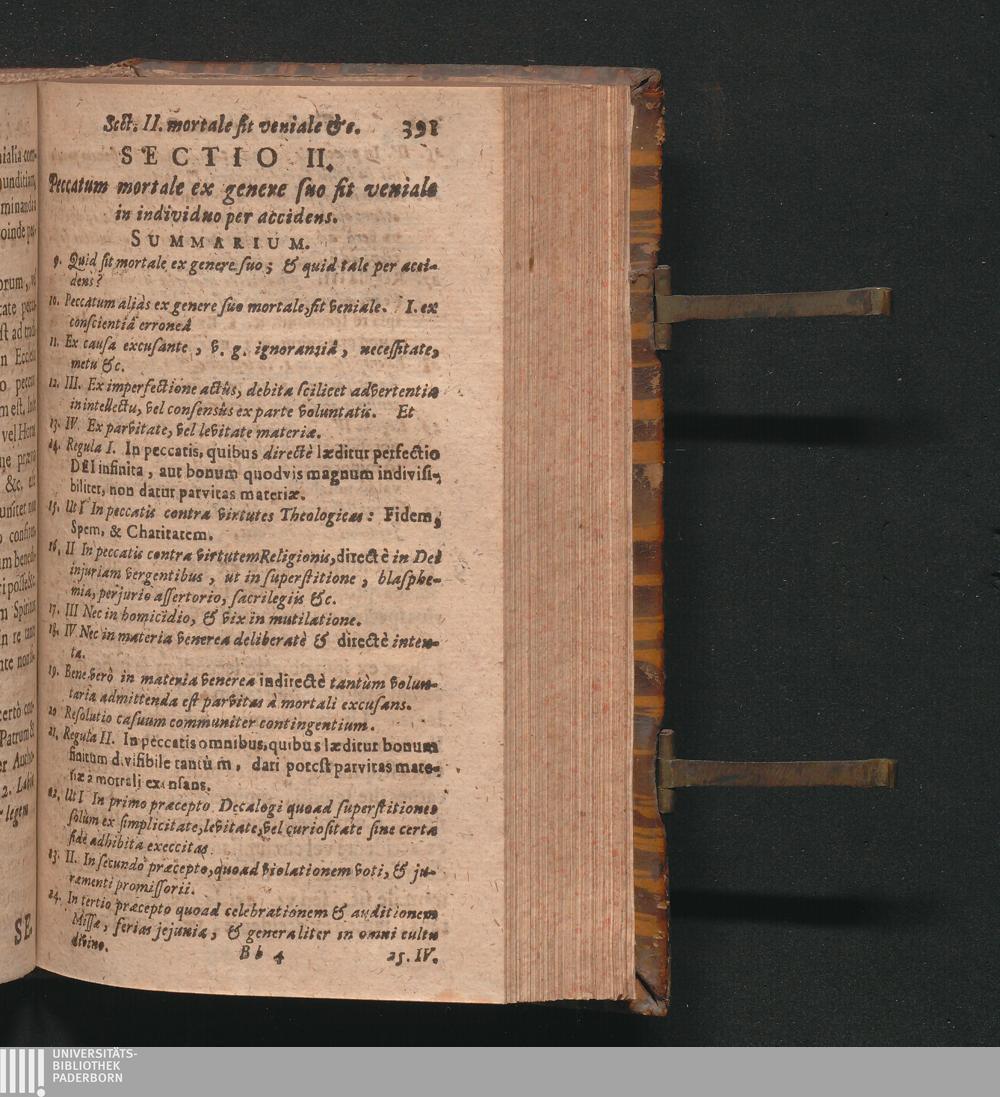 Sect. II. mortale fit veniale &c. 391
SECTIO II.
Peccatum mortale ex genere suo fit veniale
in individuo per accidens.
SUMMARIUM.
9. Quid sit mortale ex genere suo; & quid tale per acci-
dens?
10. Peccatum aliàs ex genere suo mortale, fit veniale. I. ex
conscientiâ erroneâ
11. Ex causa excusante, v. g. ignorantiâ, necessitate,
metu &c.
12. III. Ex imperfectione actûs, debita scilicet advertentia
in intellectu, vel consensûs ex parte voluntatis. Et
13. IV. Ex parvitate, vel levitate materiæ.
14. Regula I. In peccatis, quibus directè læditur perfectio
DEI infinita, aut bonum quodvis magnum indivisi-
biliter, non datur parvitas materiæ.
15. Ut I In peccatis contra virtutes Theologicas: Fidem,
Spem, & Charitatem.
16. II In peccatis contra virtutem Religionis, directè in Dei
injuriam vergentibus, ut in superstitione, blasphe-
mia, perjurio assertorio, sacrilegiis &c.
17. III Nec in homicidio, & vix in mutilatione.
18. IV Nec in materia venerea deliberatè & directè inten-
ta.
19. Bene verò in materia venerea indirectè tantùm volun-
taria admittenda est parvitas à mortali excusans.
20 Resolutio casuum communiter contingentium.
21. Regula II. In peccatis omnibus, quibus læditur bonum
finitum divisibile tantùm, dari potest parvitas mate-
riæ à mortali excusans.
22. Ut I In primo præcepto Decalogi quoad superstitiones
solùm ex simplicitate, levitate, vel curiositate sine certa
fide adhibita exercitas
23. II. In secundo præcepto, quoad violationem voti, & ju-
ramenti promissorii.
24. In tertio præcepto quoad celebrationem & auditionem
Missæ, ferias jejunia, & generaliter in omni cultu
divino.
Bb 4 25. IV.
SE-
UNIVERSITÄTS-
BIBLIOTHEK
PADERBORN